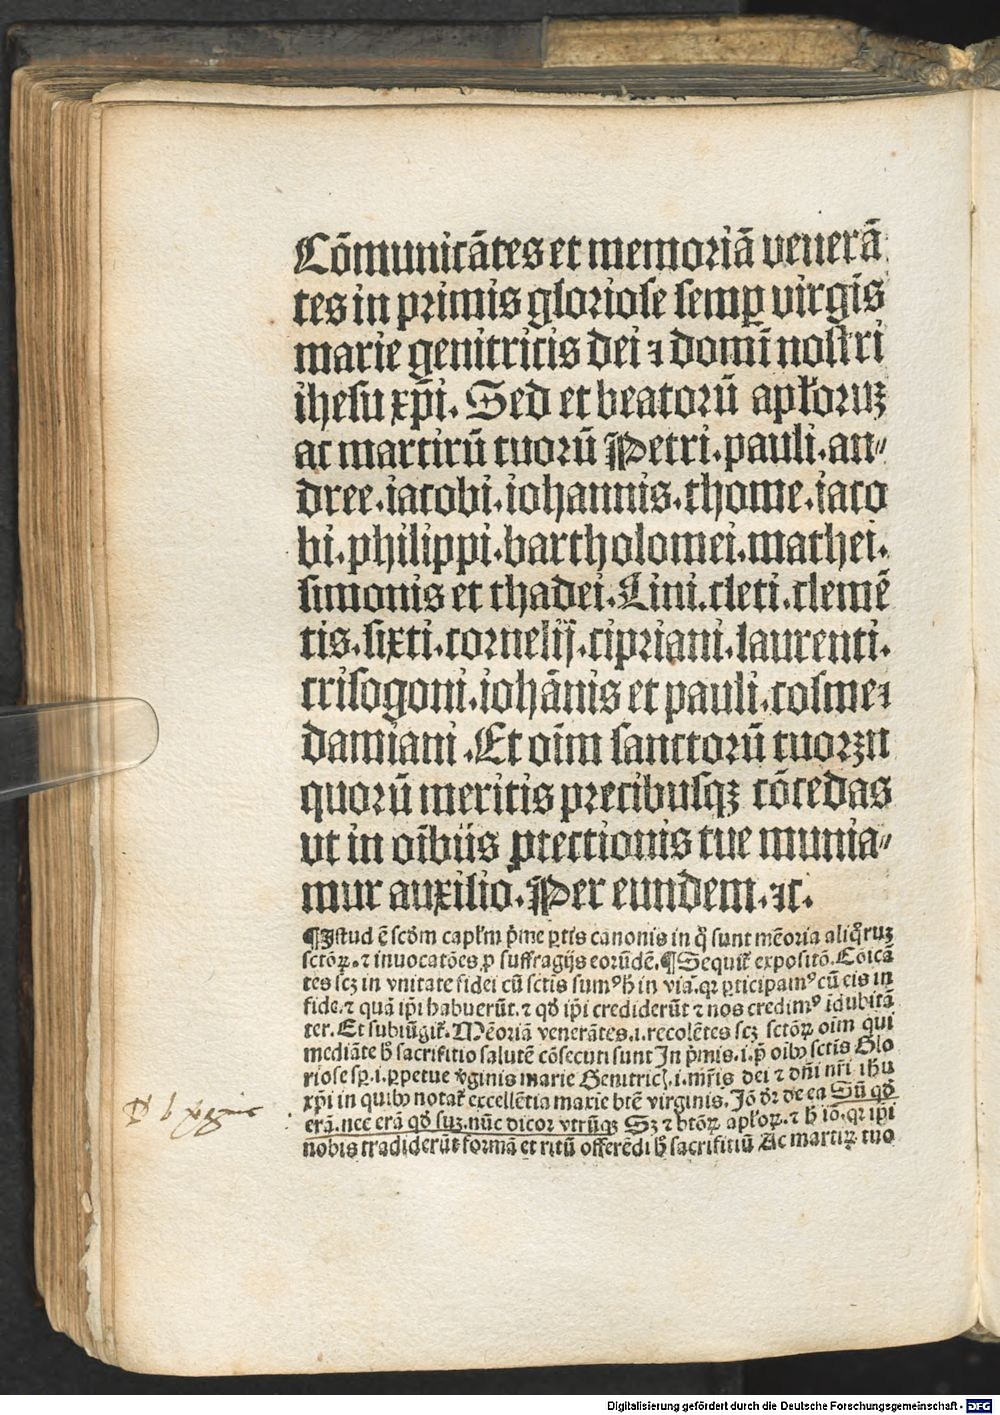 Cōmunicātes et memoriā venerā
tes in primis gloriose semꝑ virgīs
marie genitricis dei ⁊ domī nostri
ihesu xp̄i. Sed et beatorū apl̄oruꝫ
ac martirū tuorū ¶Petri. pauli. an⸗
dree. iacobi. iohannis. thome. iaco
bi. philippi. bartholomei. mathei.
simonis et thadei. Lini. cleti. clemē
tis. sixti. cornelij. cipriani. laurenti.
crisogoni. iohānis et pauli. cosme ⁊
damiani. Et oīm sanctorū tuorꝫn
quorū meritis precibusqꝫ cōcedas
ut in oībus ꝓtectionis tue munia⸗
mur auxilio. ¶Per eundem. ⁊c.
¶Istud ē scd̄m capl̄m p̄me ꝑtis canonis in q̊ sunt mēoria aliq̊ruꝫ
sctōꝝ. ⁊ inuocatōes ꝓ suffragijs eorūdē. ¶Sequit᷑ expositō. Cōicā
tes scꝫ in vnitate fidei cū sctis sumꝰ h̄ in viā. qꝛ ꝑticipamꝰ cū eis in
fide. ⁊ quā ip̄i habuerūt. ⁊ qd̄ ip̄i crediderūt ⁊ nos credimꝰ īdubitā
ter. Et subiūgit᷑. Mēoriā venerātes .i. recolētes scꝫ sctōꝝ oīm qui
mediāte h̄ sacrifitio salutē cōsecuti sunt In p̄mis .i. p̄ oībꝫ sctīs Glo
riose sꝑ .i. ꝑpetue v̄ginis marie Genitric̄ .i. mr̄is dei ⁊ dn̄i nr̄i ih̄u
xp̄i in quibꝫ notat᷑ excellētia marie btē virginis. Jō dr̄ de ea Sū qd̄
erā. nec erā qd̄ suꝫ. nūc dicor vtrūqꝫ Sꝫ ⁊ btōꝝ apl̄oꝝ. ⁊ h̄ iō. qꝛ ip̄i
nobis tradiderūt formā et ritū offerēdi h̄ sacrifitiū Ac martiꝝ tuo
Digitalisierung gefördert durch die Deutsche Forschungsgemeinschaft - DFG